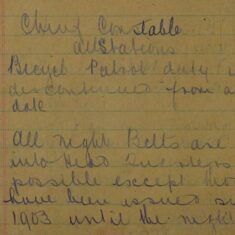 Chief Constable
all Stations
Bicycle Patrol duty
discontinued from a
date
All night Belts are
into Head
possible except
have been issued
1903 until the night